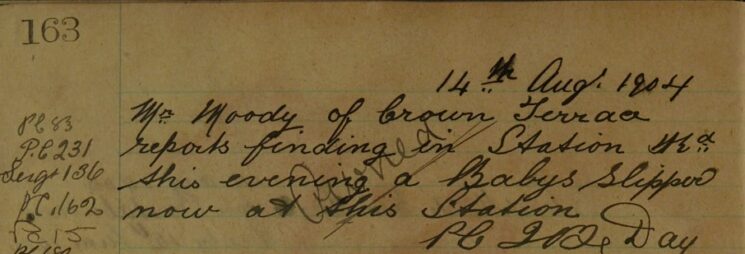 163
14th Aug. 1904
Mr Moody of Crown Terrace
reports finding in Station Rd
this evening a Babys Slipper
now at this Station
PC Day
PC 83
P.C 231
Sergt 136
P.C. 162